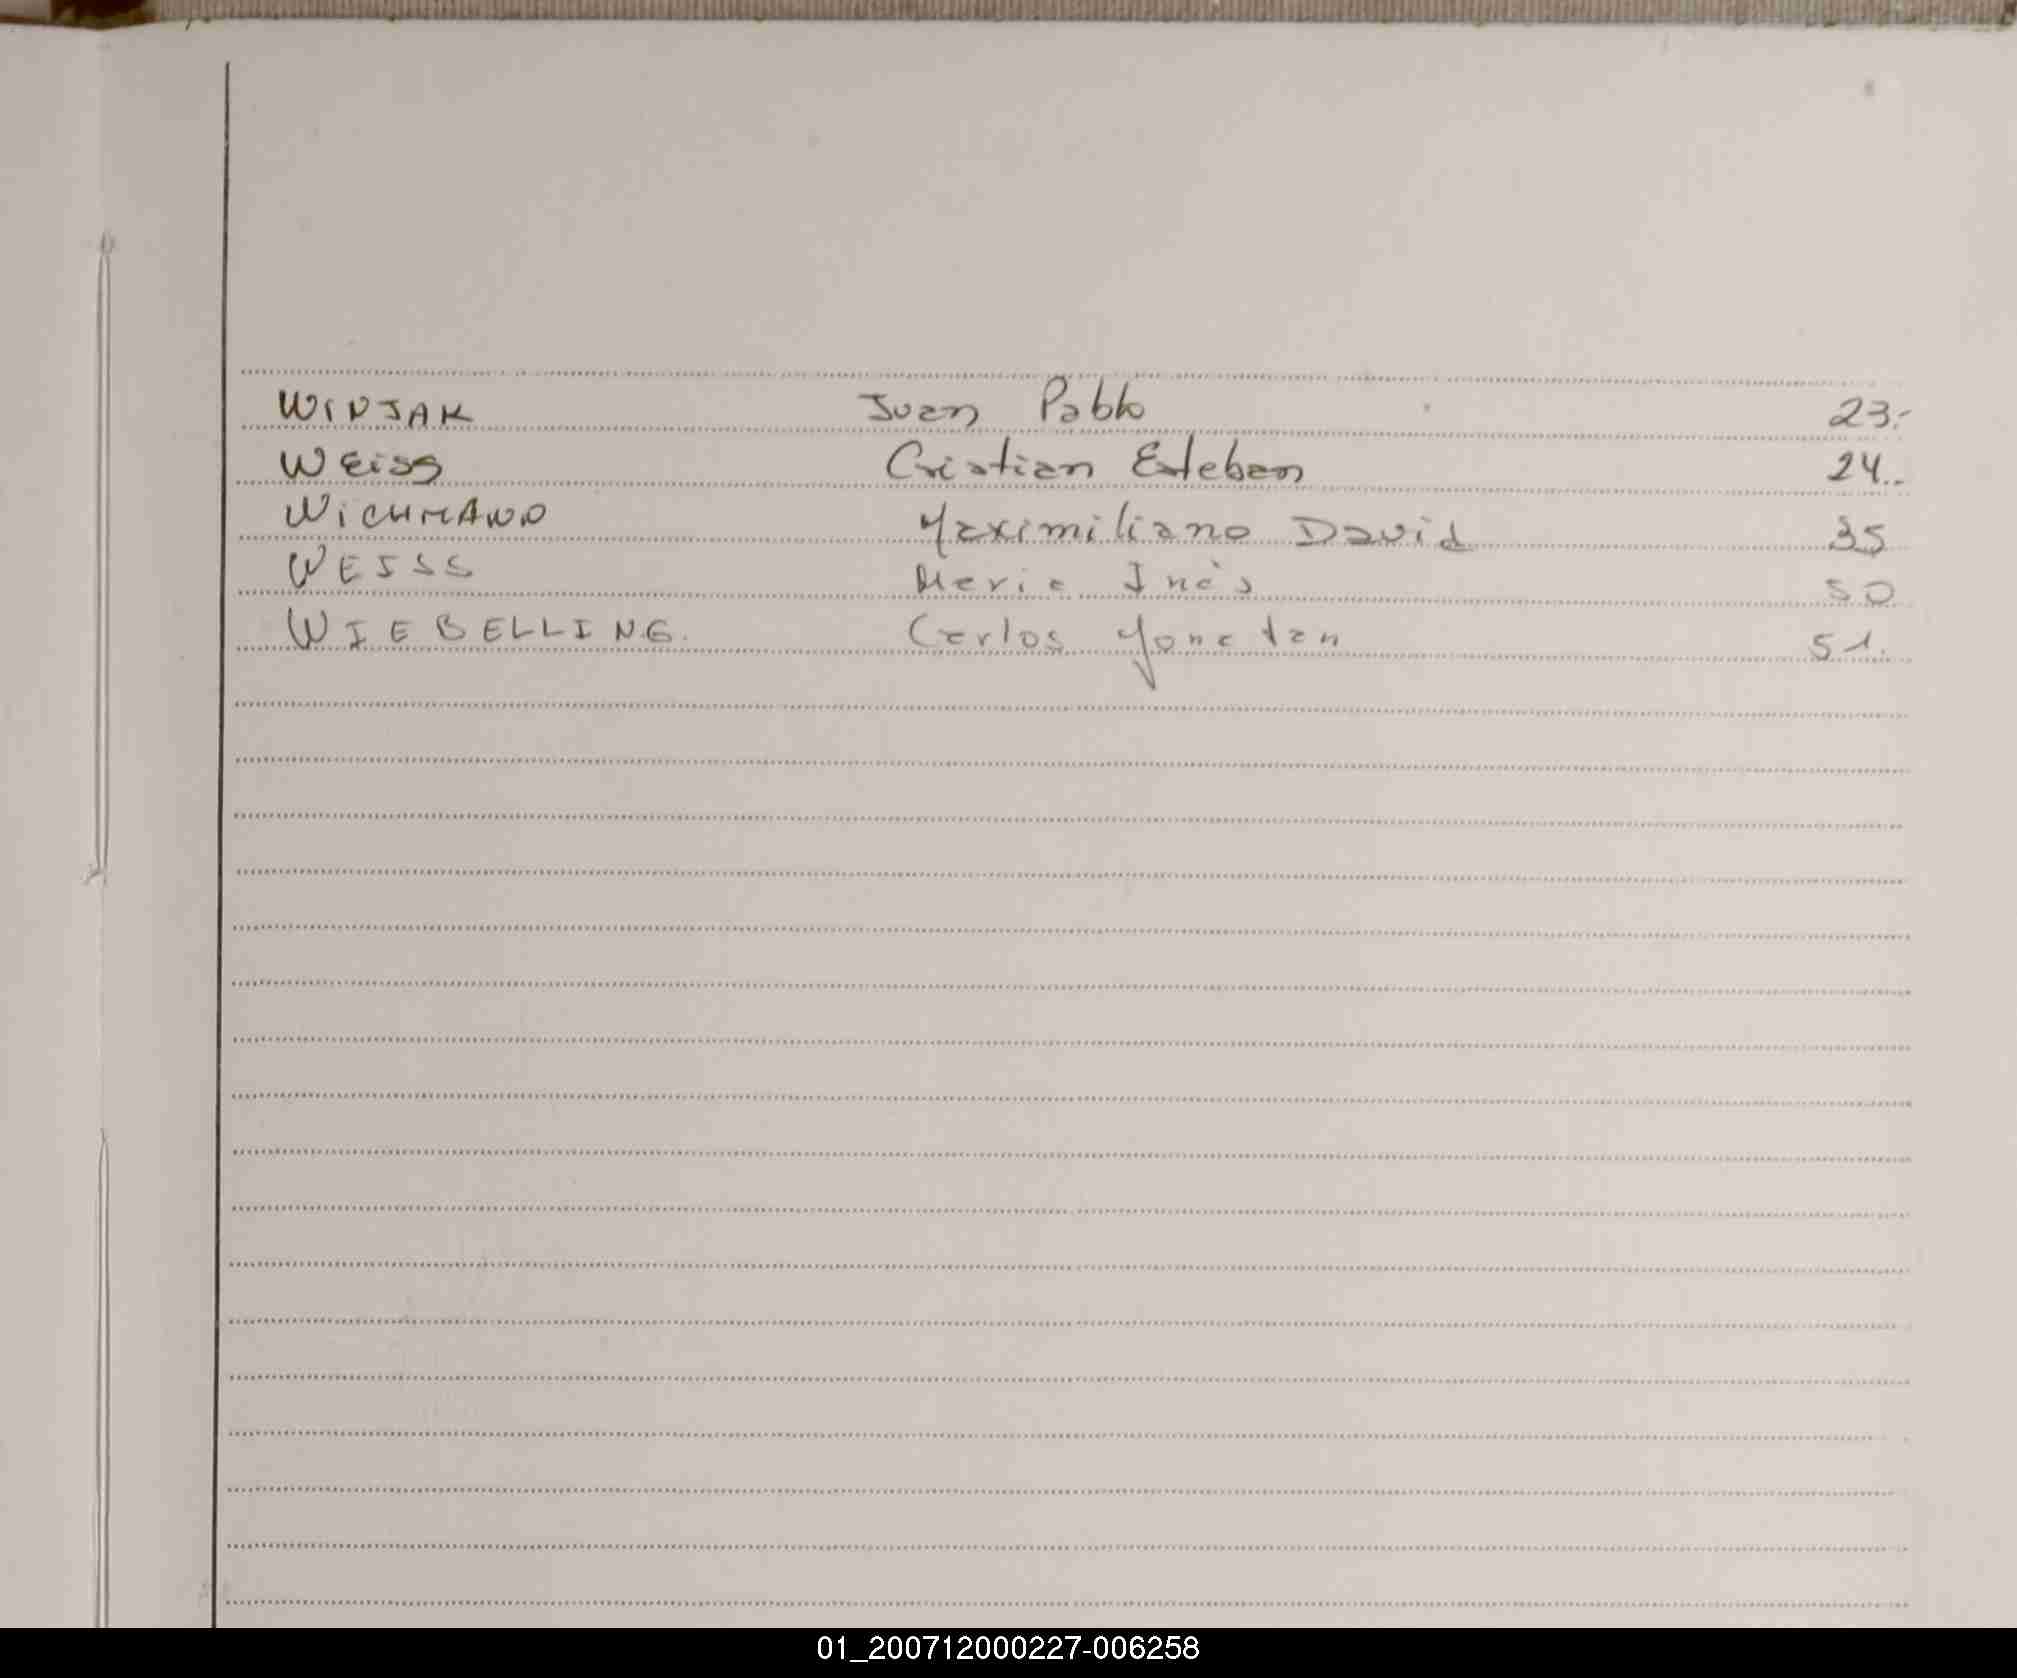 WINJAK Juan Pablo 23.-
WEiSS Cristian Esteban 24..
WiCHMANN Maximiliano David 35
WEISS Maria Inés 50
WIEBELLING. Carlos Yonatan 51.
01_200712000227-006258